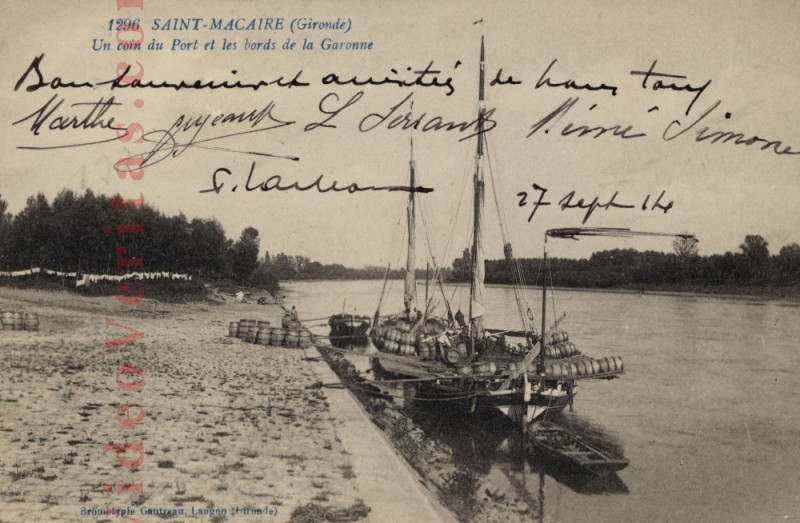 1296 SAINT-MACAIRE (Gironde)
Un coin du Port et les bords de la Garonne
Bon souvenir et amitiés de nous tous
Marthe L Serrant Rémé Simone
27 sept 14
Bromotypie Gautreau, Langon (Gironde)
www.videoveritas.com